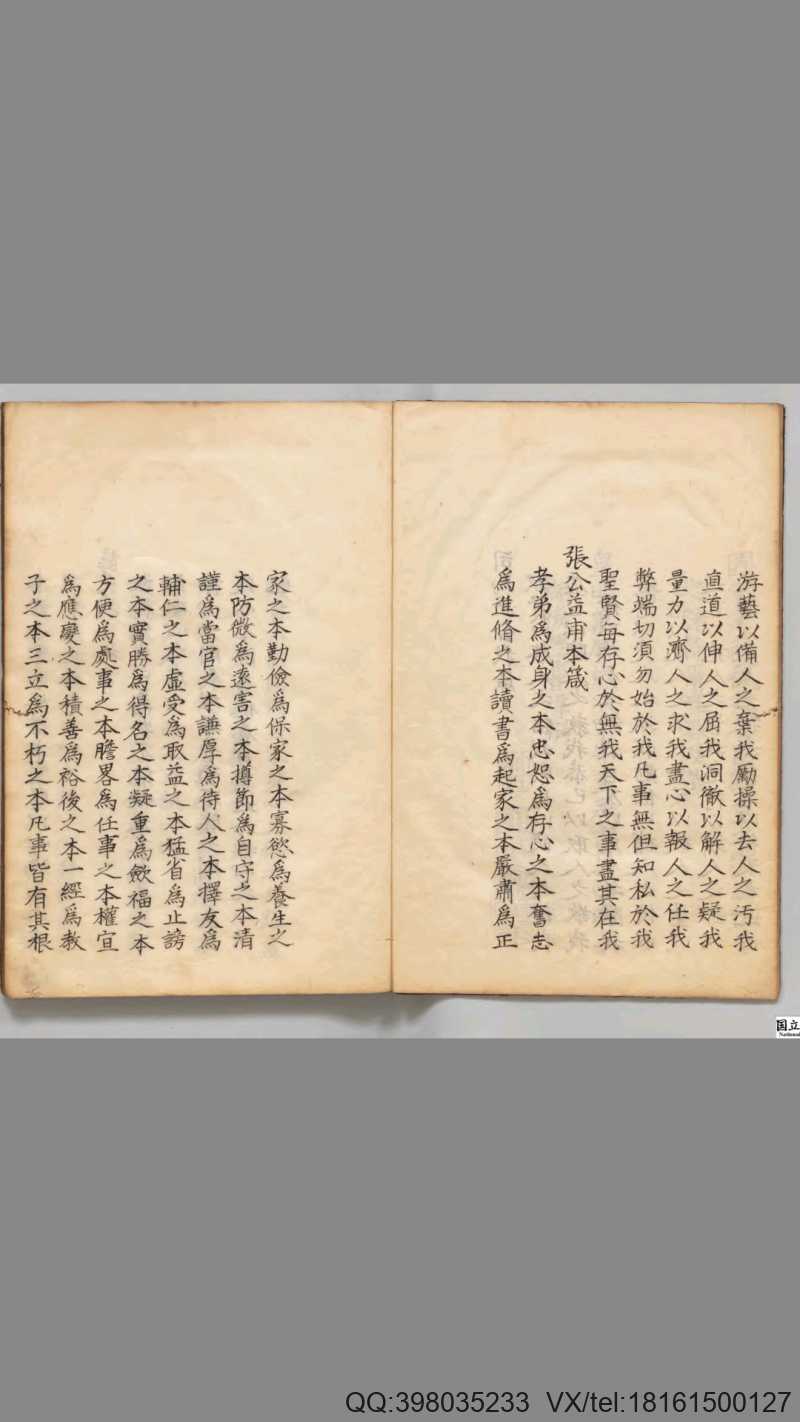 游藝以備人之棄我勵操以去人之汚我
直道以伸人之屈我洞徹以解人之疑我
量力以濟人之求我盡心以報人之任我
弊端切須勿始於我凡事無但知私於我
聖賢每存心於無我天下之事盡其在我
張公益甫本箴
孝弟為成身之本忠恕為存心之本奮志
為進脩之本讀書為起家之本嚴肅為正
家之本勤儉為保家之本寡慾為養生之
本防微為遠害之本撙節為自守之本清
謹為當官之本謙厚為待人之本擇友為
輔仁之本虛受為取益之本猛省為止謗
之本實勝為得名之本凝重為斂福之本
方便為處事之本膽畧為任事之本權宜
為應變之本積善為裕後之本一經為教
子之本三立為不朽之本凡事皆有其根
国立
National
QQ:398035233 VX/tel:18161500127